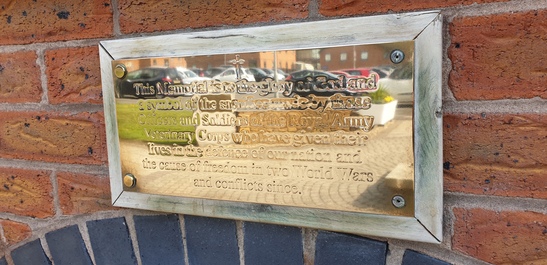 This Memorial is to the glory of God and
a symbol of the sacrifice made by those
Officers and Soldiers of the Royal Army
Veterinary Corps who have given their
lives in the defence of our nation and
the cause of freedom in two World Wars
and conflicts since.